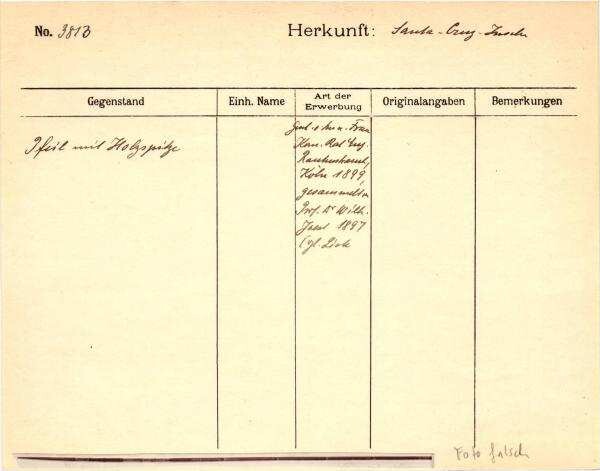 No. 3813 Herkunft: Santa-Cruz-Inseln
Gegenstand Einh. Name Art der Erwerbung Originalangaben Bemerkungen
Pfeil mit Holzspitze
Frau
Rautenstrauch,
Köln 1899,
gesammelt v.
Prof. Dr Wilh.
Joest 1897
Foto falsch